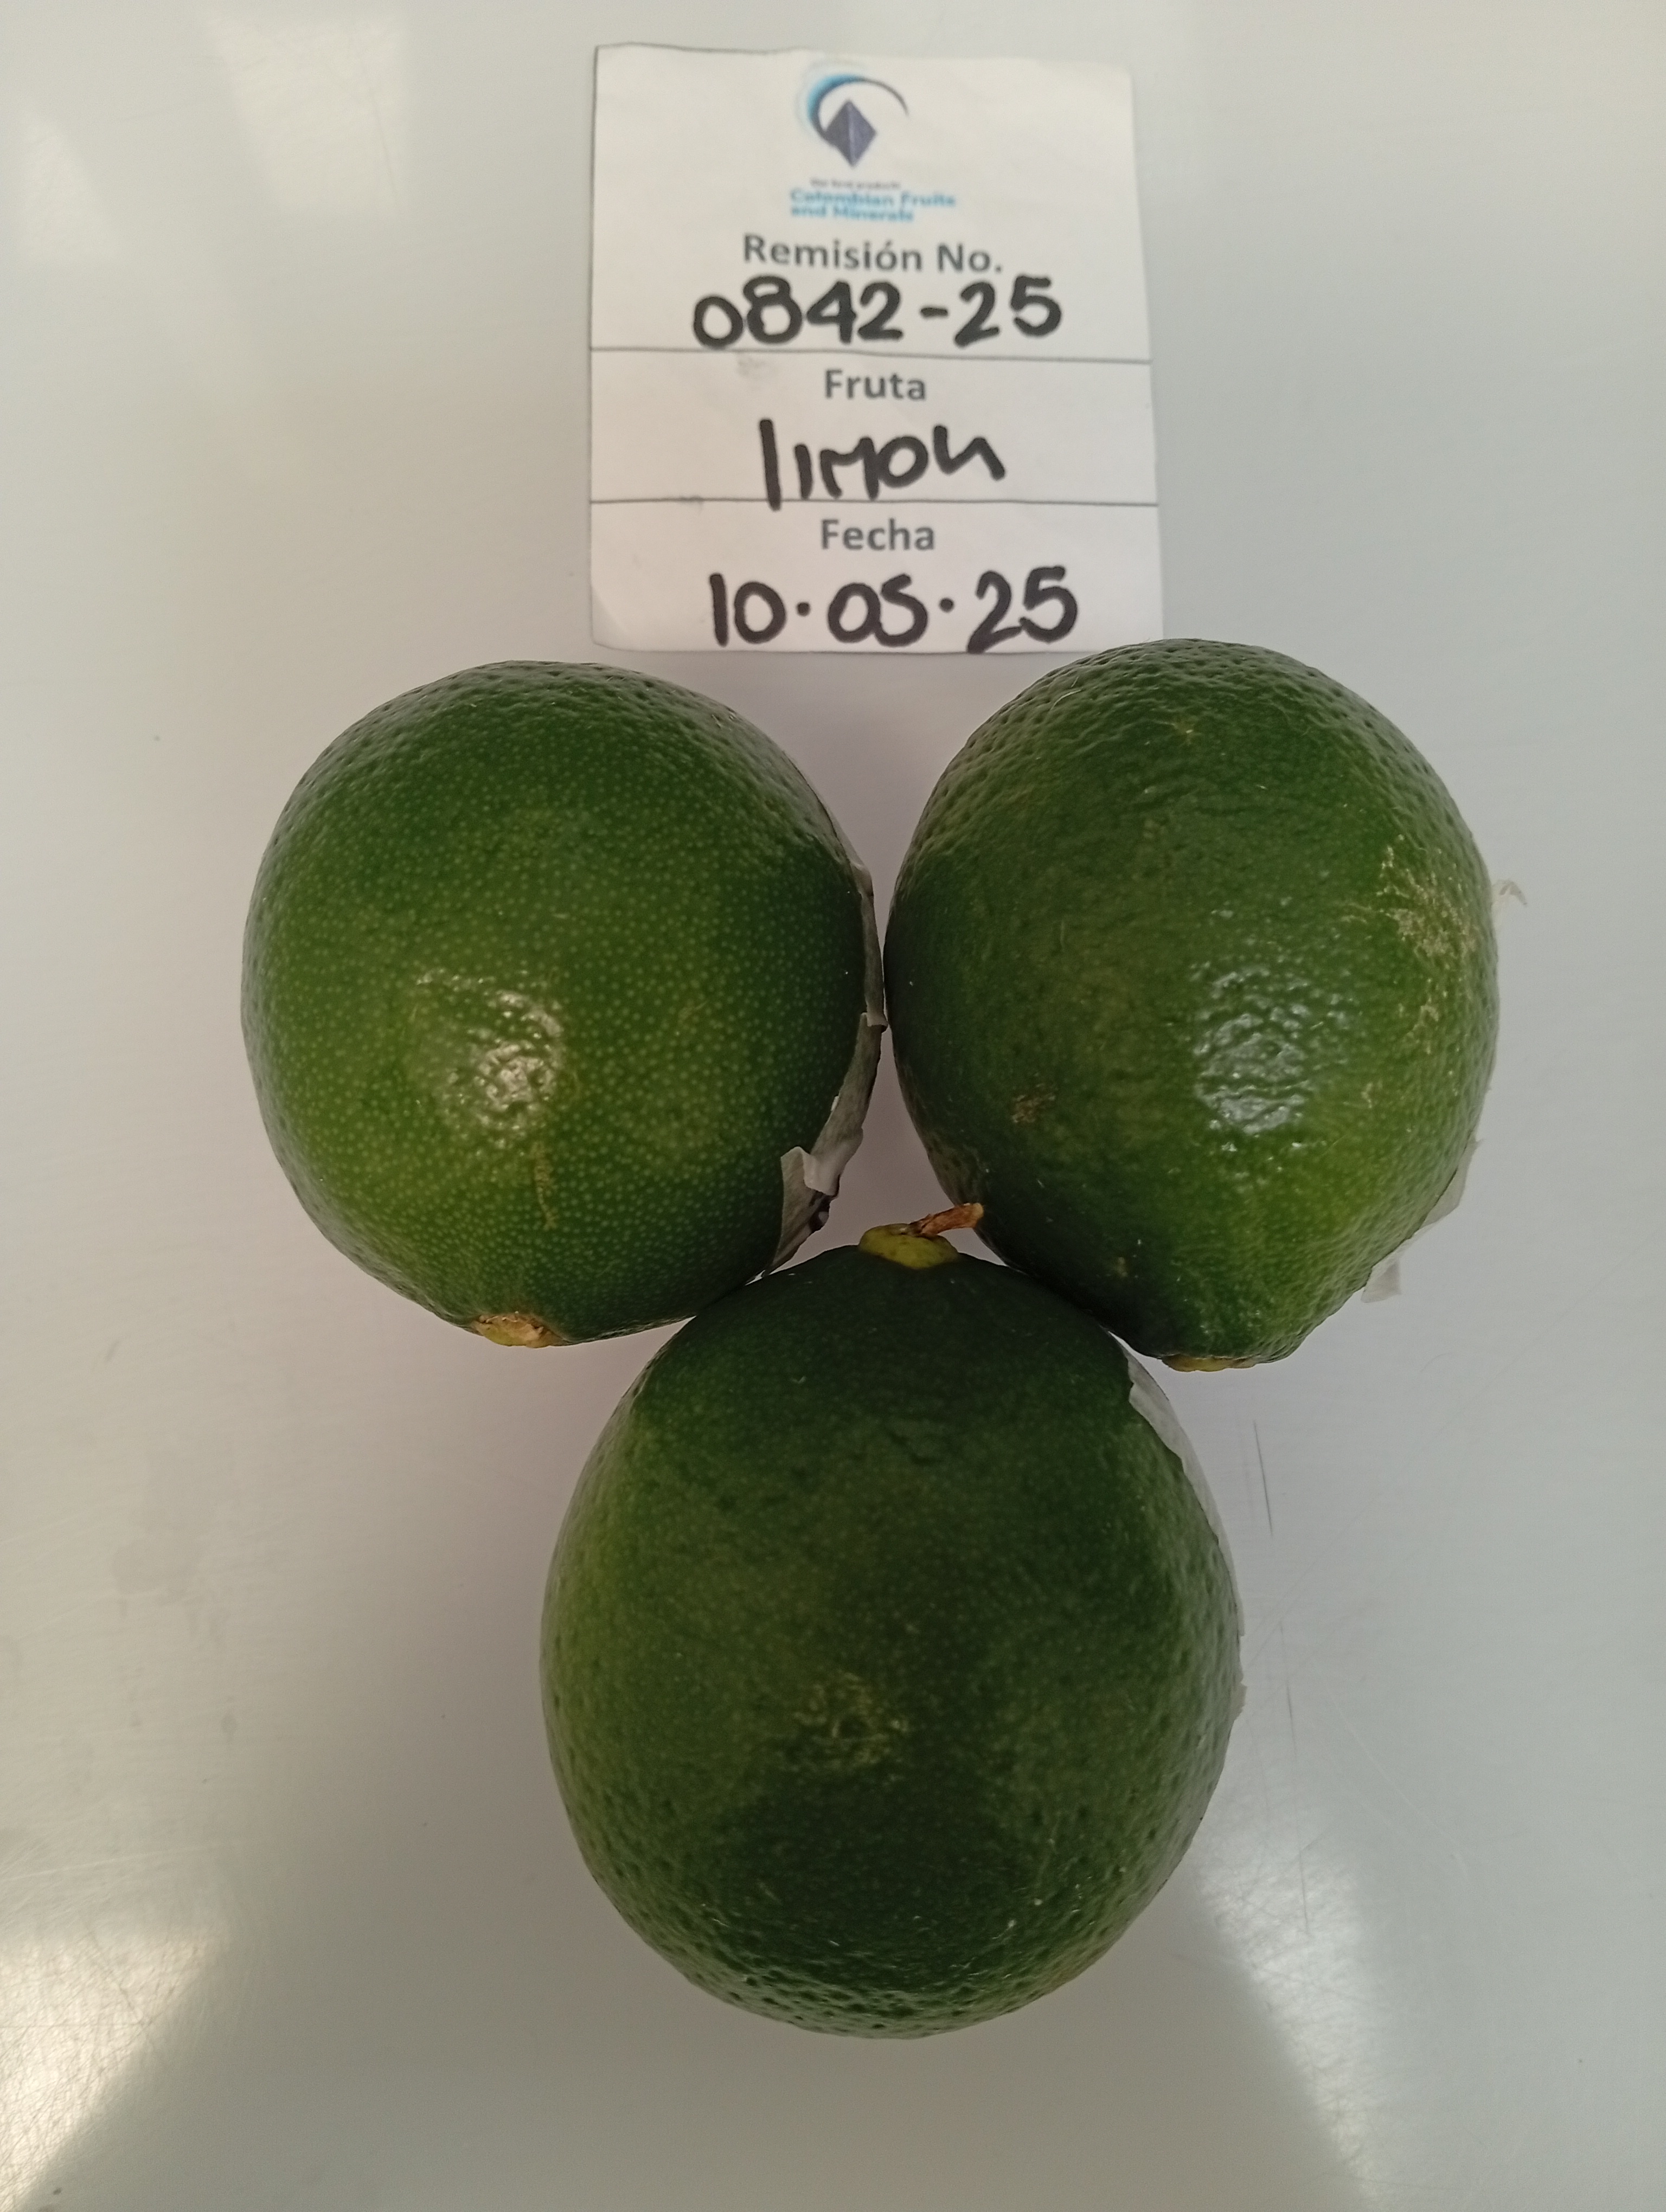 Colombian Fruits
and Minerals
Remisión No.
0842-25
Fruta
limon
Fecha
10.05.25